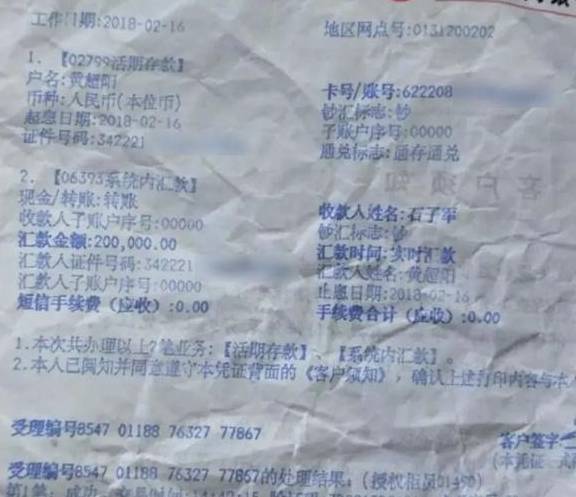 工作日期:2018-02-16 地区网点号:0131200202
1. 【02799活期存款】
户名:黄超阳 卡号/账号:622208
币种:人民币(本位币) 钞汇标志:钞
起息日期:2018-02-16 子账户序号:00000
证件号码:342221 通兑标志:通存通兑
2. 【06393系统内汇款】
现金/转账:转账 收款人姓名:石子军
收款人子账户序号:00000 钞汇标志:钞
汇款金额:200,000.00 汇款时间:实时汇款
汇款人证件号码:342221 汇款人姓名:黄超阳
汇款人子账户序号:00000 止息日期:2018-02-16
短信手续费(应收):0.00 手续费合计(应收):0.00
1.本次共办理以上2笔业务:【活期存款】、【系统内汇款】。
2.本人已阅知并同意遵守本凭证背面的《客户须知》,确认上述打印内容与本人
受理编号8547 01188 76327 77867
客户签字
(本凭证一式
受理编号8547 01188 76327 77867的处理结果:(授权柜员01450)
第1笔:成功 交易时间:14:42:15